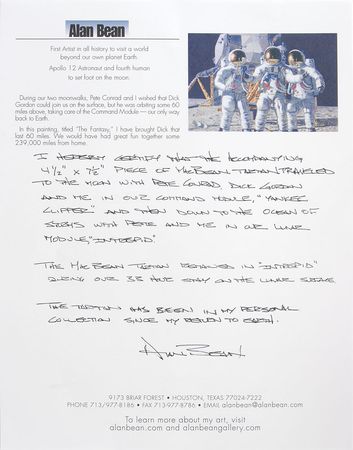 Alan Bean
First Artist in all history to visit a world
beyond our own planet Earth.
Apollo 12 Astronaut and fourth human
to set foot on the moon.
During our two moonwalks, Pete Conrad and I wished that Dick
Gordon could join us on the surface, but he was orbiting some 60
miles above, taking care of the Command Module — our only way
back to Earth.
In this painting, titled "The Fantasy," I have brought Dick that
last 60 miles. We would have had great fun together some
239,000 miles from home.
I HEREBY CERTIFY THAT THE ACCOMPANYING
4 1/2" x 7 1/2" PIECE OF MACBEAN TARTAN TRAVELED
TO THE MOON WITH PETE CONRAD DICK GORDON
AND ME IN OUR COMMAND MODULE, "YANKEE
CLIPPER" AND THEN DOWN TO THE OCEAN OF
STORMS WITH PETE AND ME IN OUR LUNAR
MODULE, "INTREPID"
THE MACBEAN TARTAN REMAINED IN "INTREPID"
DURING OUR 33 HOUR STAY ON THE LUNAR SURFACE
THE TARTAN HAS BEEN IN MY PERSONAL
COLLECTION SINCE MY RETURN TO EARTH.
ALAN BEAN
9173 BRIAR FOREST • HOUSTON, TEXAS 77024-7222
PHONE 713/977-8186 • FAX 713-977-8786 • EMAIL alanbean@alanbean.com
To learn more about my art, visit
alanbean.com and alanbeangallery.com